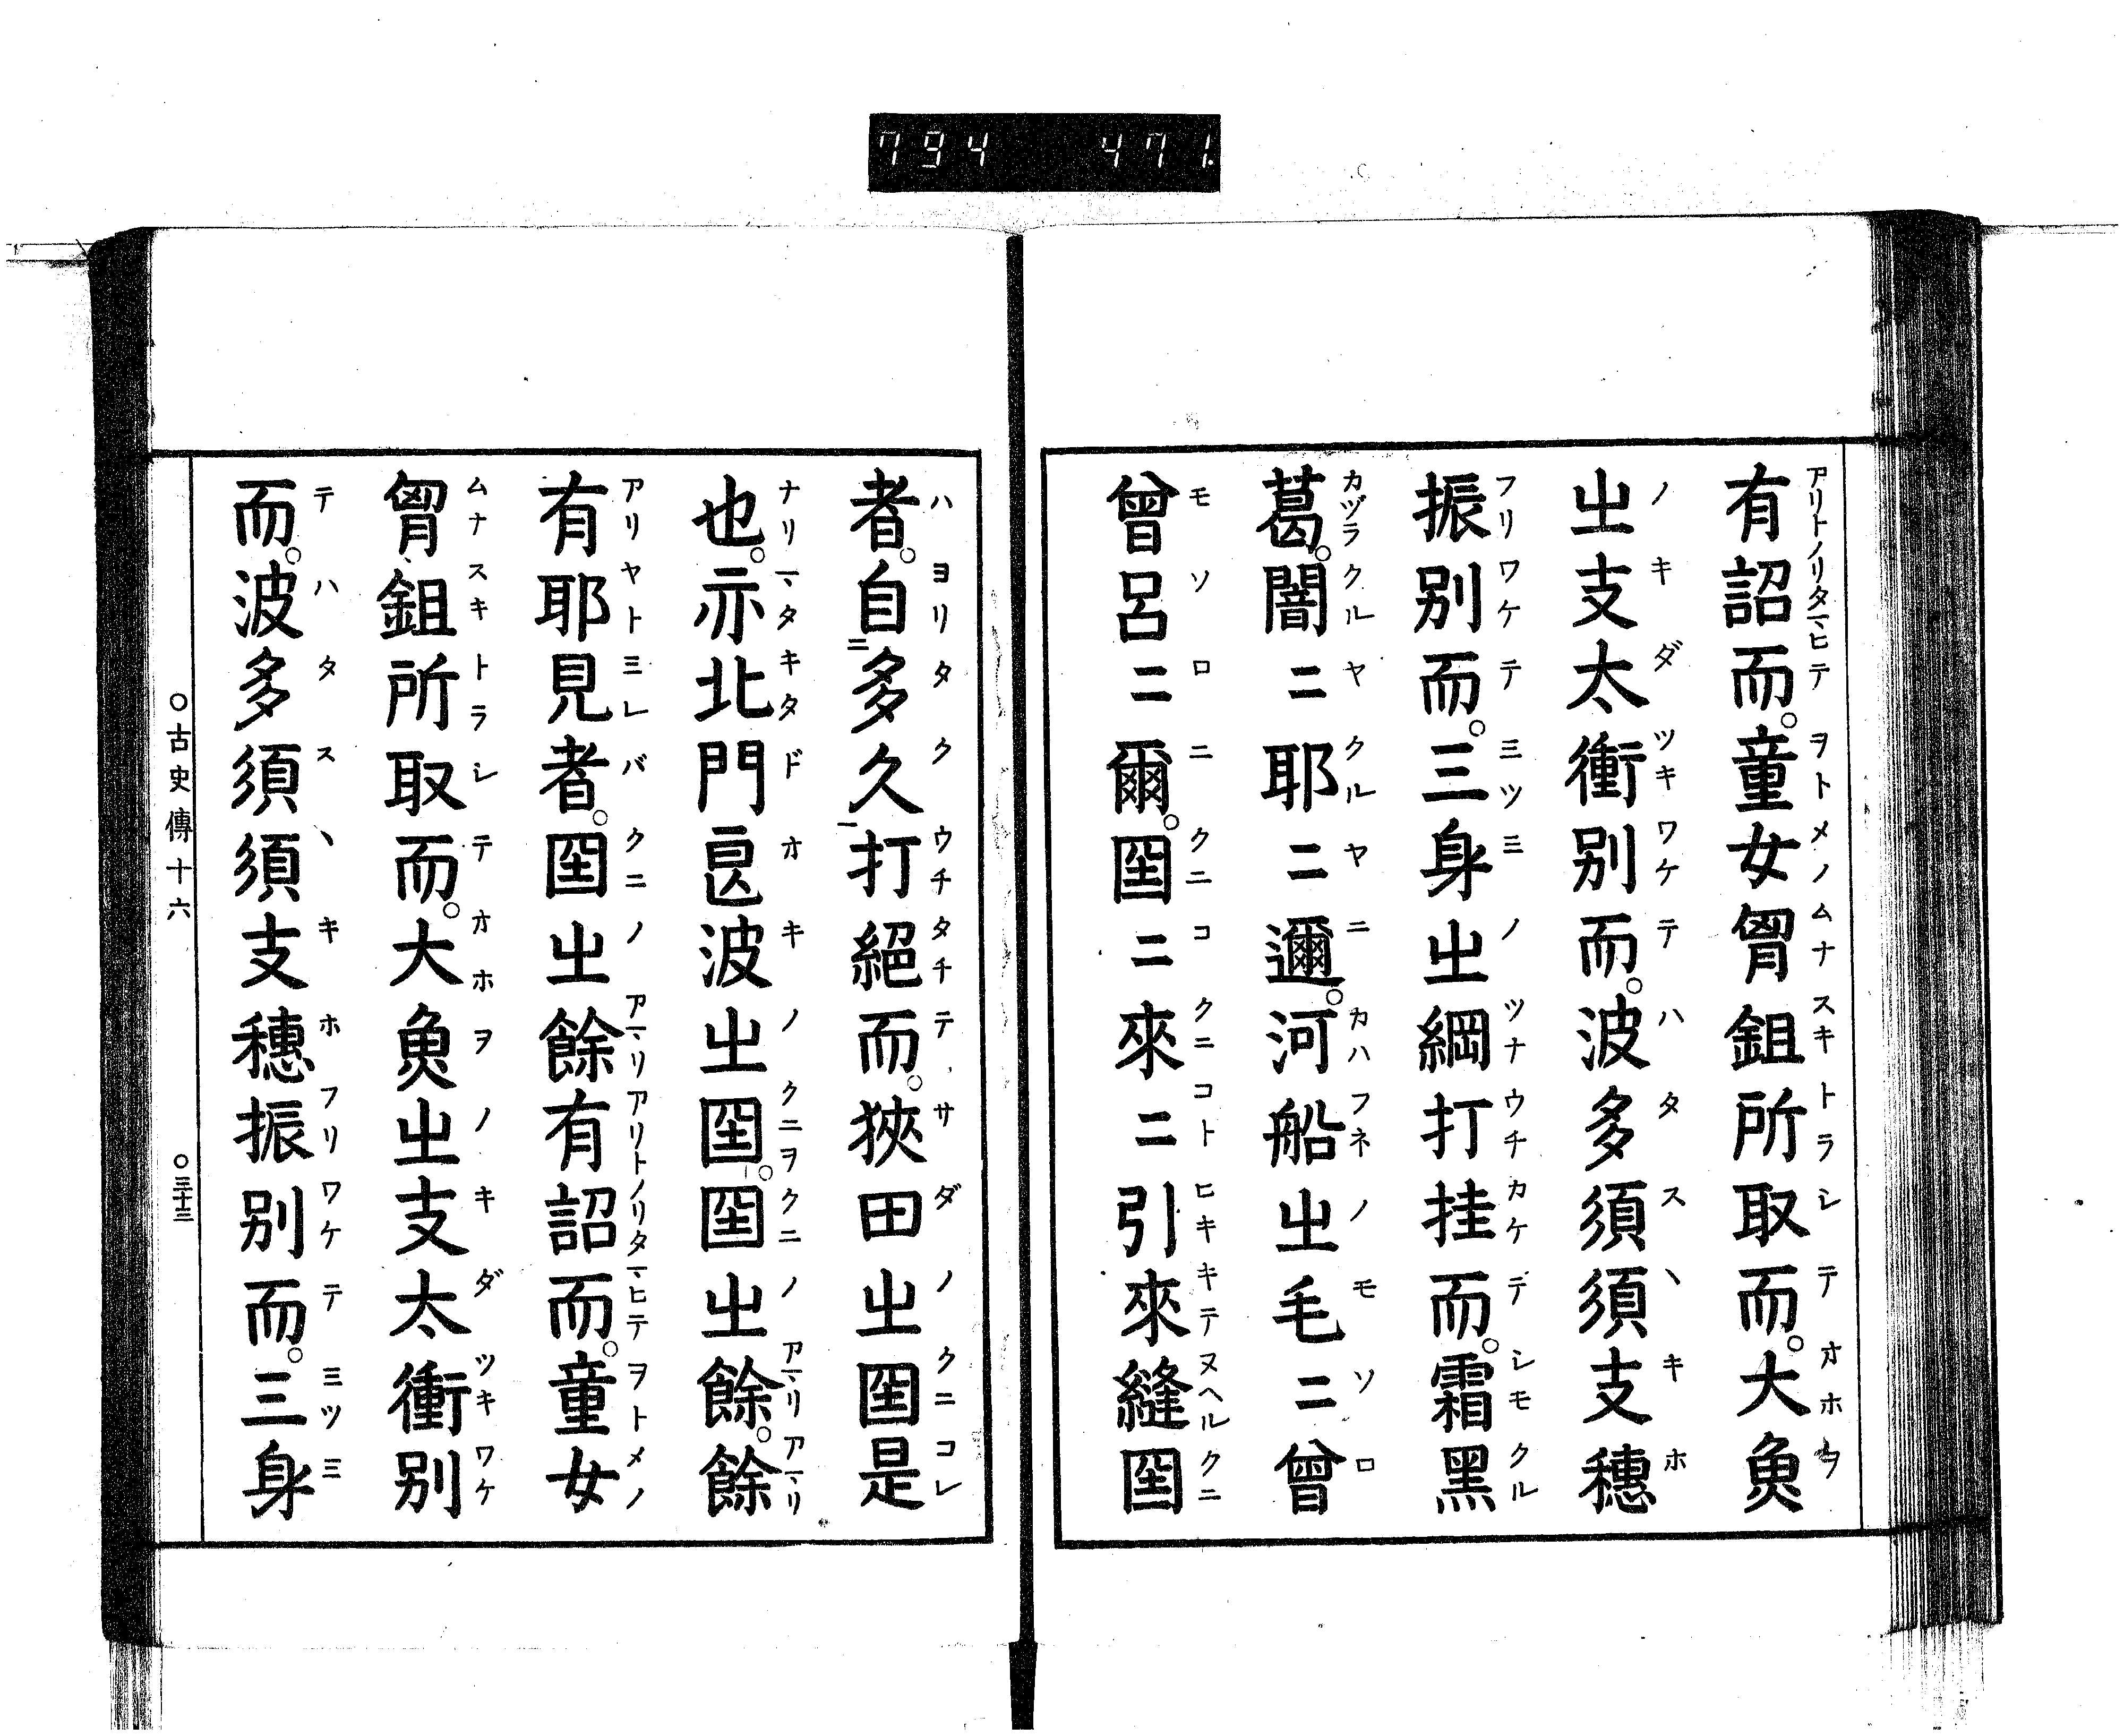 794 471.
有詔而。童女胷鉏所取而。大魚
㞢支太衝別而。波多須須支穗
振別而。三身㞢綱打挂而。霜黑
葛。闇ニ耶ニ邇。河船㞢毛ニ曾
曾呂ニ爾。囶ニ來ニ引來縫囶
者。自多久打絕而。狹田㞢囶是
也。亦北門良波㞢囶。囶㞢餘。餘
有耶見者。囶㞢餘有詔而。童女
胷鉏所取而。大魚㞢支太衝別
而。波多須須支穗振別而。三身
○古史傳十六 ○三十三